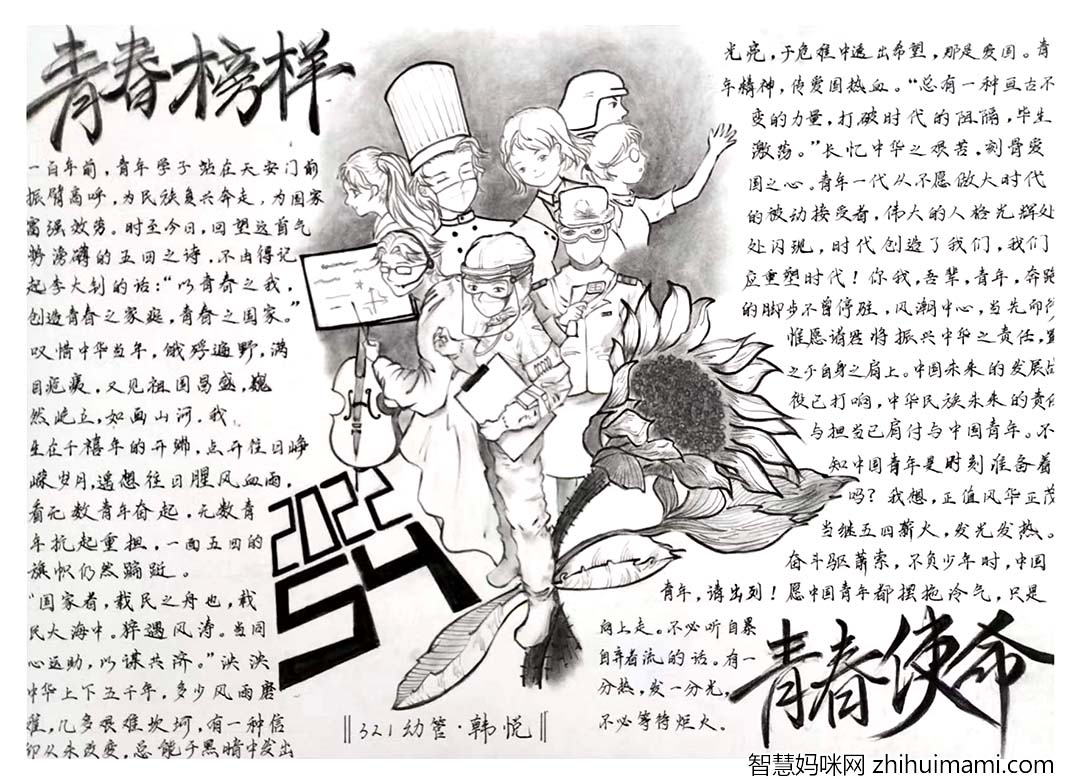 青春榜样
一百年前，青年学子站在天安门前
振臂高呼，为民族复兴奔走，为国家
富强效劳。时至今日，回望这首气
势滂礴的五四之诗，不由得记
起李大钊的话：“以青春之我，
创造青春之家庭，青春之国家。”
叹惜中华当年，饿殍遍野，满
目疮痍，又见祖国昌盛，巍
然屹立，如画山河。我
生在千禧年的开卷，点开往日峥
嵘岁月，遥想往日腥风血雨，
看无数青年奋起，无数青
年扛起重担，一面五四的
旗帜仍然蹁跹。
“国家者，载民之舟也，载
民大海中。猝遇风涛。当同
心运助，以谋共济。”泱泱
中华上下五千年，多少风雨磨
难，几多艰难坎坷，有一种信
仰从未改变，总能于黑暗中发出
光亮，于危难中透出希望，那是爱国。青
年精神，传爱国热血。“总有一种亘古不
变的力量，打破时代的阻隔，毕生
激荡。”长忆中华之艰苦，刻骨爱
国之心。青年一代从不愿做大时代
的被动接受者，伟大的人格光辉处
处闪现，时代创造了我们，我们
应重塑时代！你我，吾辈，青年，奔跑
的脚步不曾停驻，风潮中心，当先而行
惟愿诸君将振兴中华之责任，置
之于自身之肩上。中国未来的发展战
役已打响，中华民族未来的责任
与担当已肩付与中国青年。不
知中国青年是时刻准备着
吗？我想，正值风华正茂
当继五四薪火，发光发热。
奋斗驱萧索，不负少年时，中国
青年，请出列！愿中国青年都摆拖冷气，只是
向上走。不必听自暴
自弃者流的话。有一
分热，发一分光，
不必等待炬火。
青春使命
2022
54
‖321幼管·韩悦‖
智慧妈咪网 zhihuimami.com